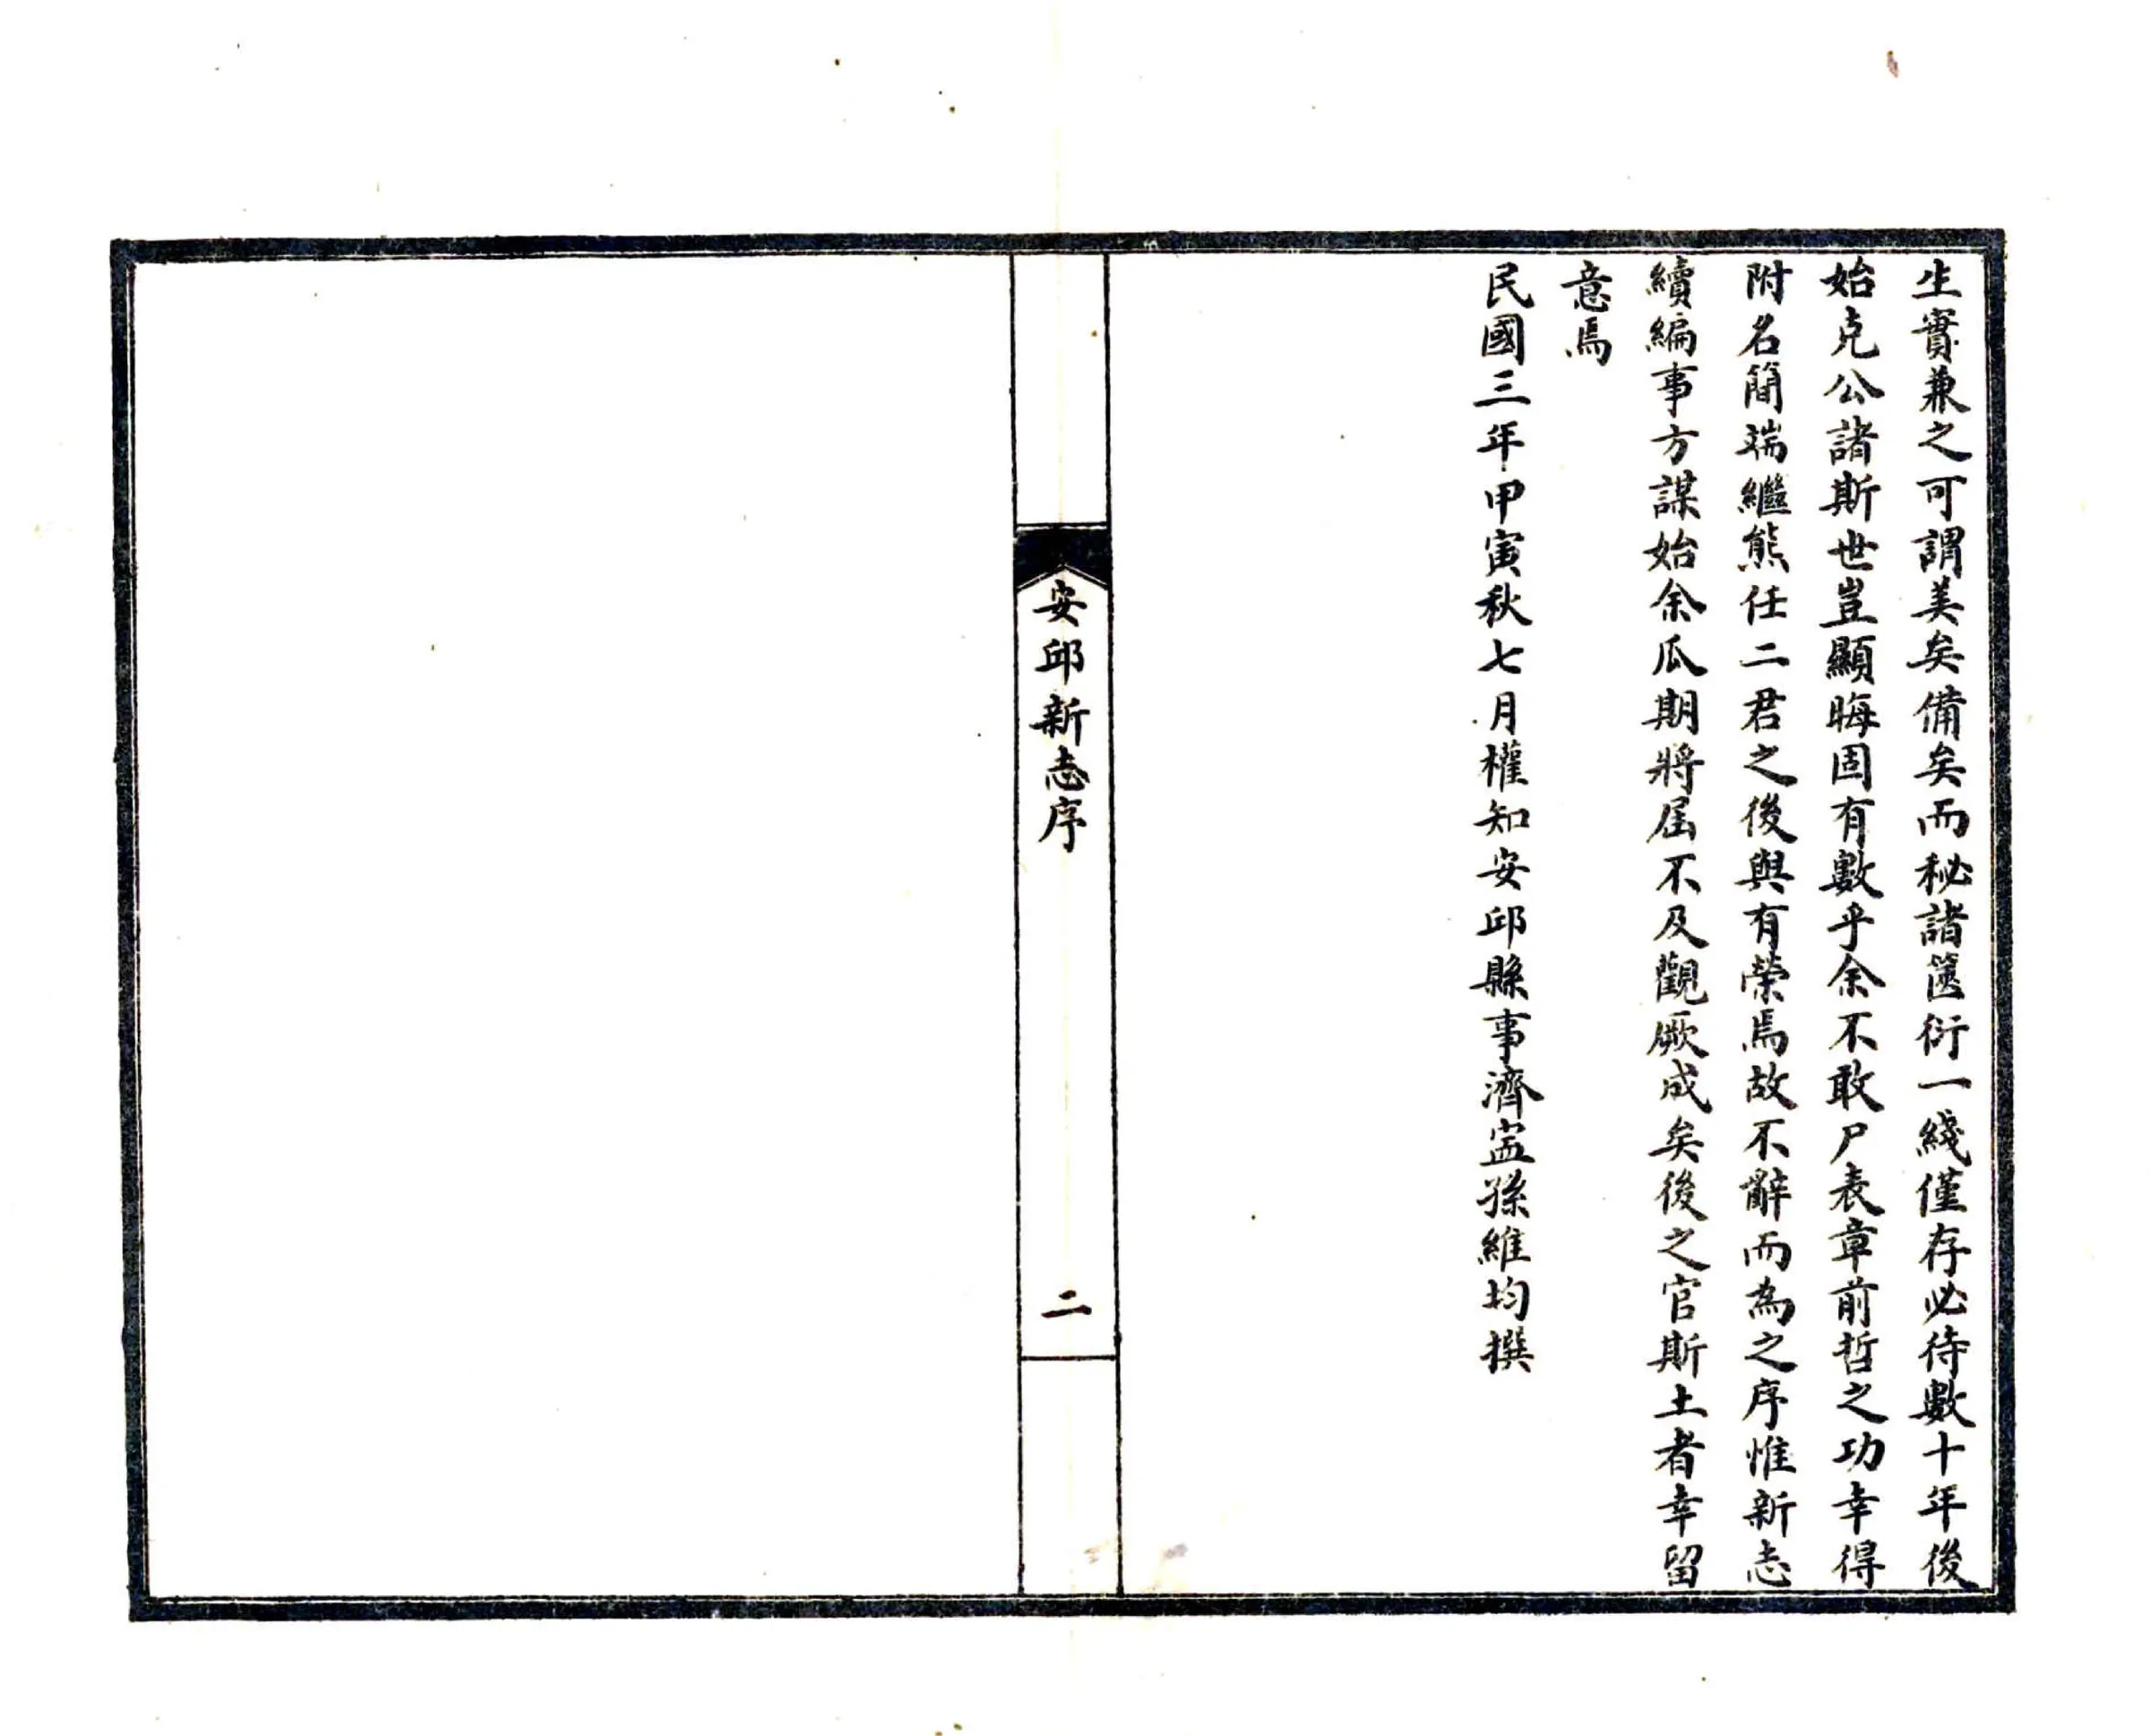 生實兼之可謂美矣備矣而秘諸篋衍一綫僅存必待數十年後
始克公諸斯世豈顯晦固有數乎余不敢尸表章前哲之功幸得
附名簡端繼熊任二君之後與有榮焉故不辭而為之序惟新志
續編事方謀始余瓜期將屆不及觀厥成矣後之官斯土者幸留
意焉
民國三年甲寅秋七月權知安邱縣事濟寍孫維均撰
安邱新志序
二